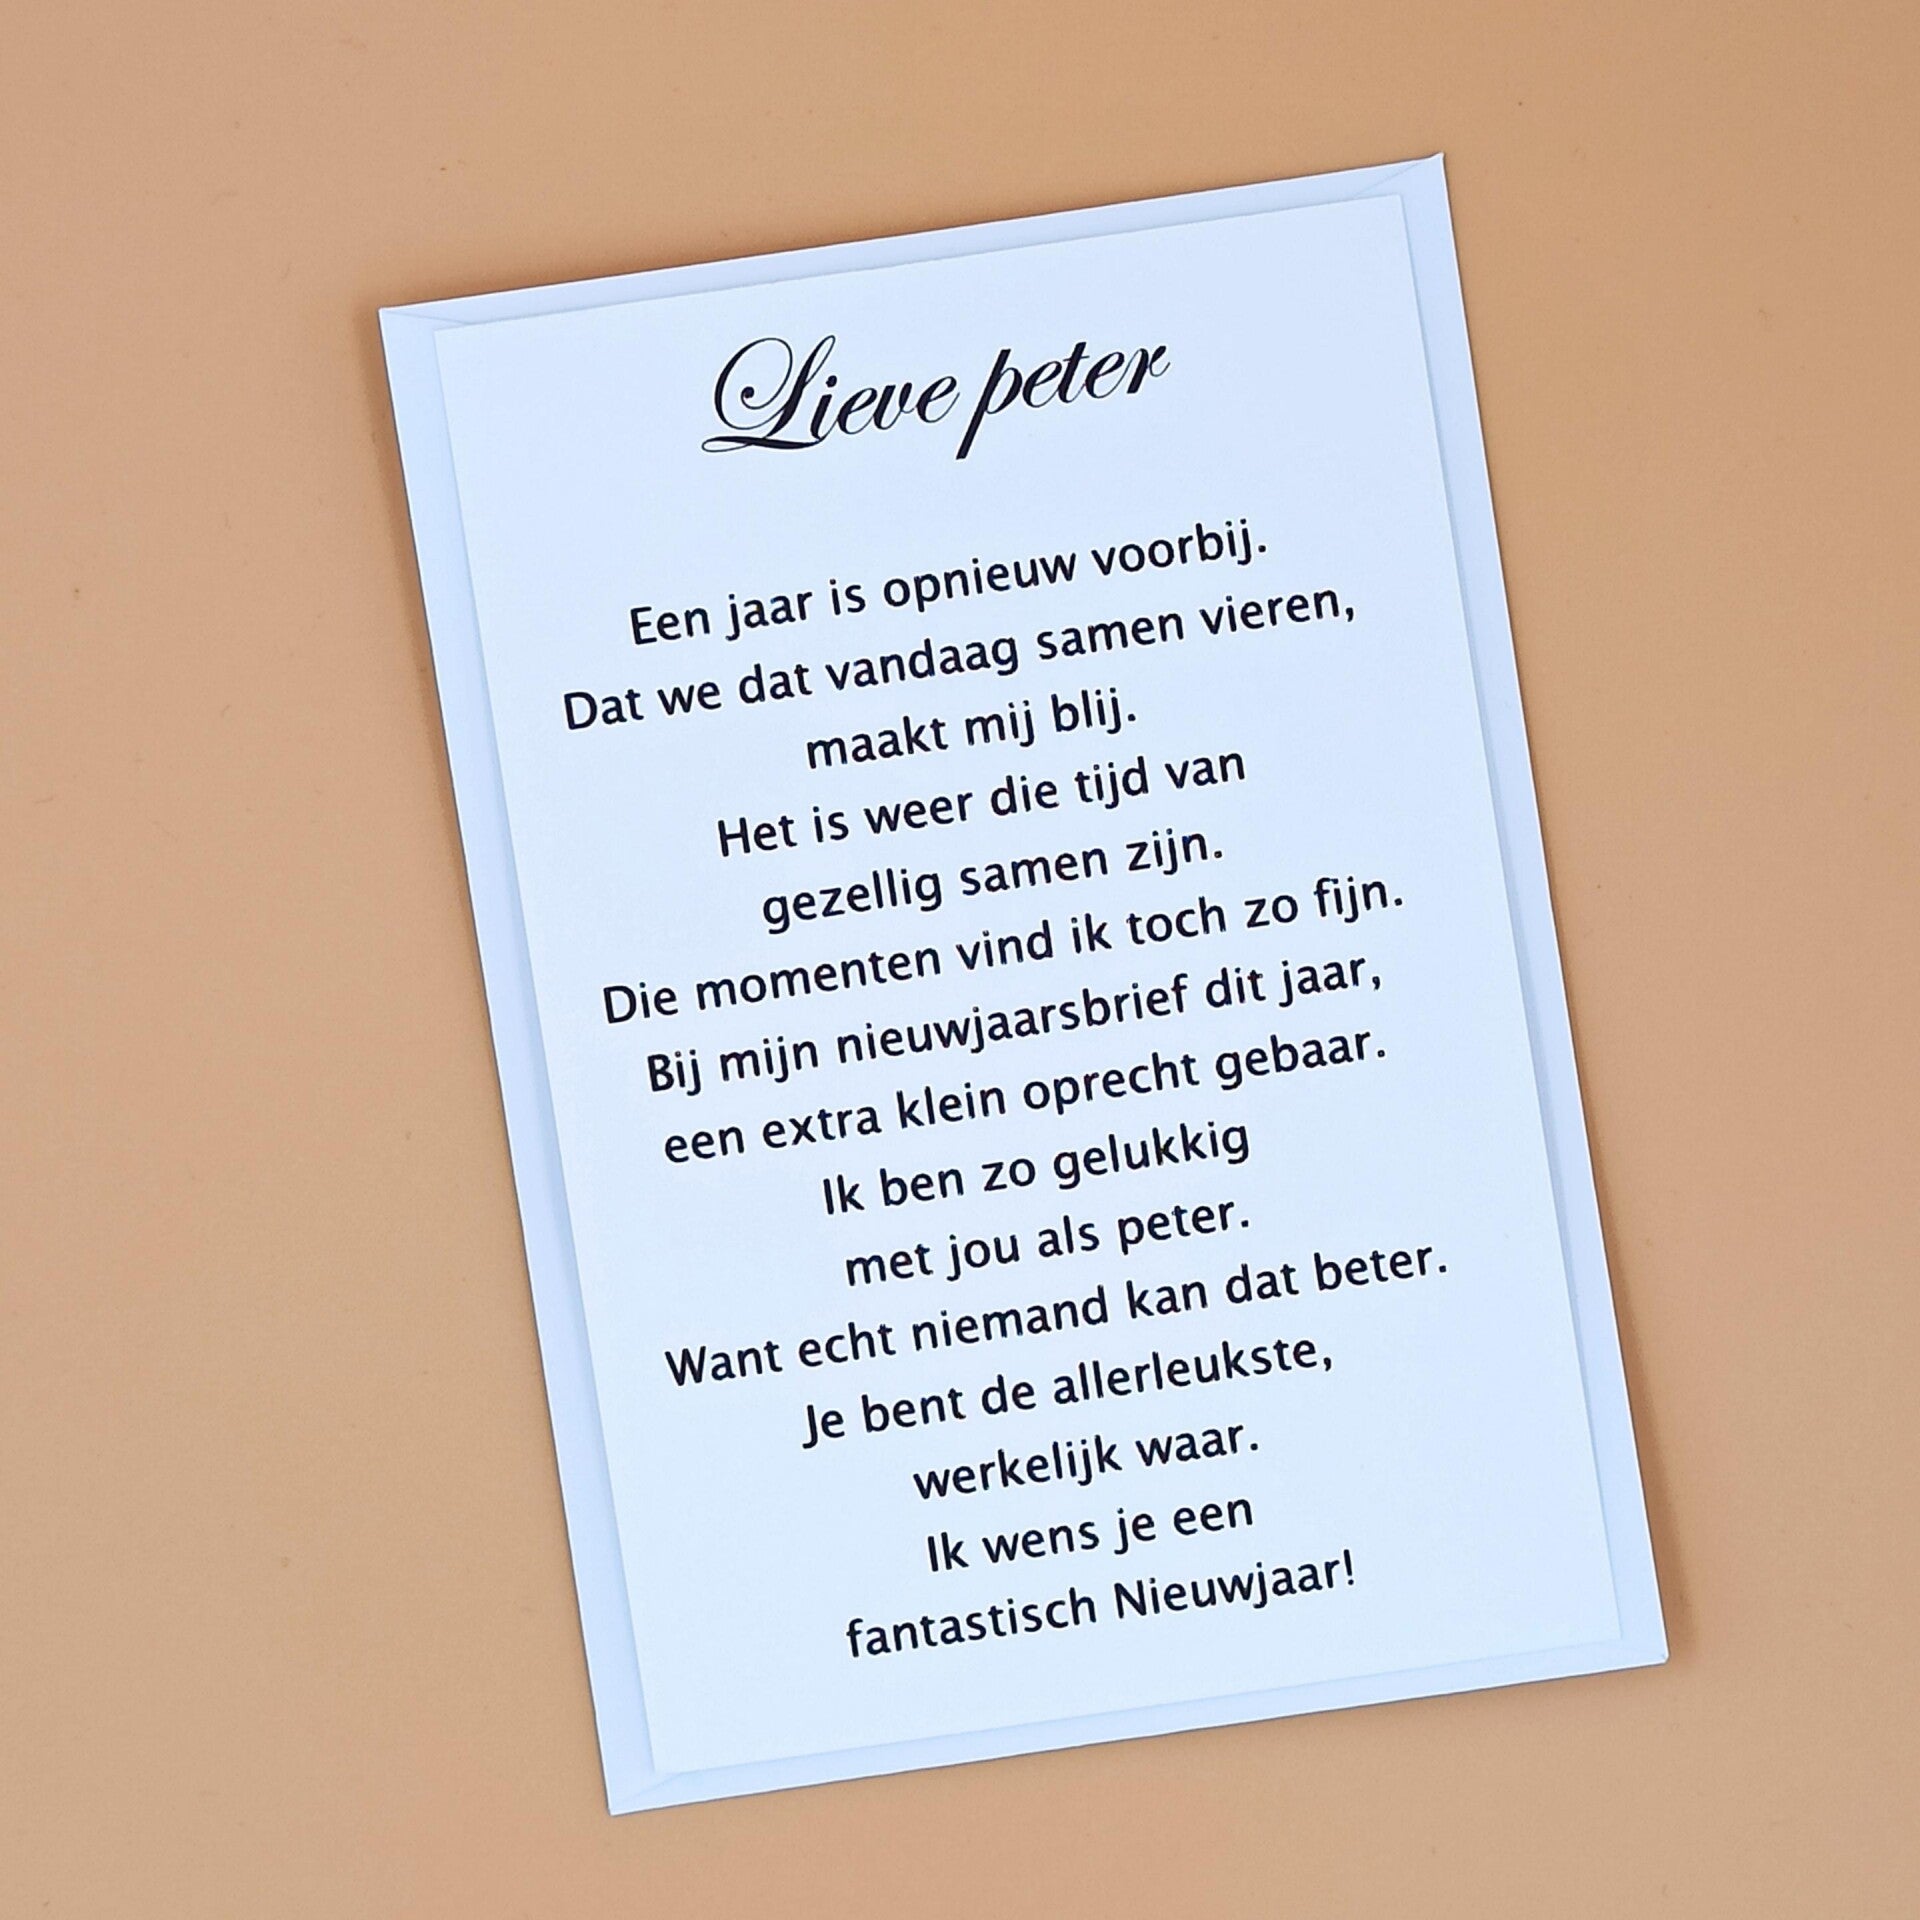 Lieve peter
Een jaar is opnieuw voorbij.
Dat we dat vandaag samen vieren,
maakt mij blij.
Het is weer die tijd van
gezellig samen zijn.
Die momenten vind ik toch zo fijn.
Bij mijn nieuwjaarsbrief dit jaar,
een extra klein oprecht gebaar.
Ik ben zo gelukkig
met jou als peter.
Want echt niemand kan dat beter.
Je bent de allerleukste,
werkelijk waar.
Ik wens je een
fantastisch Nieuwjaar!